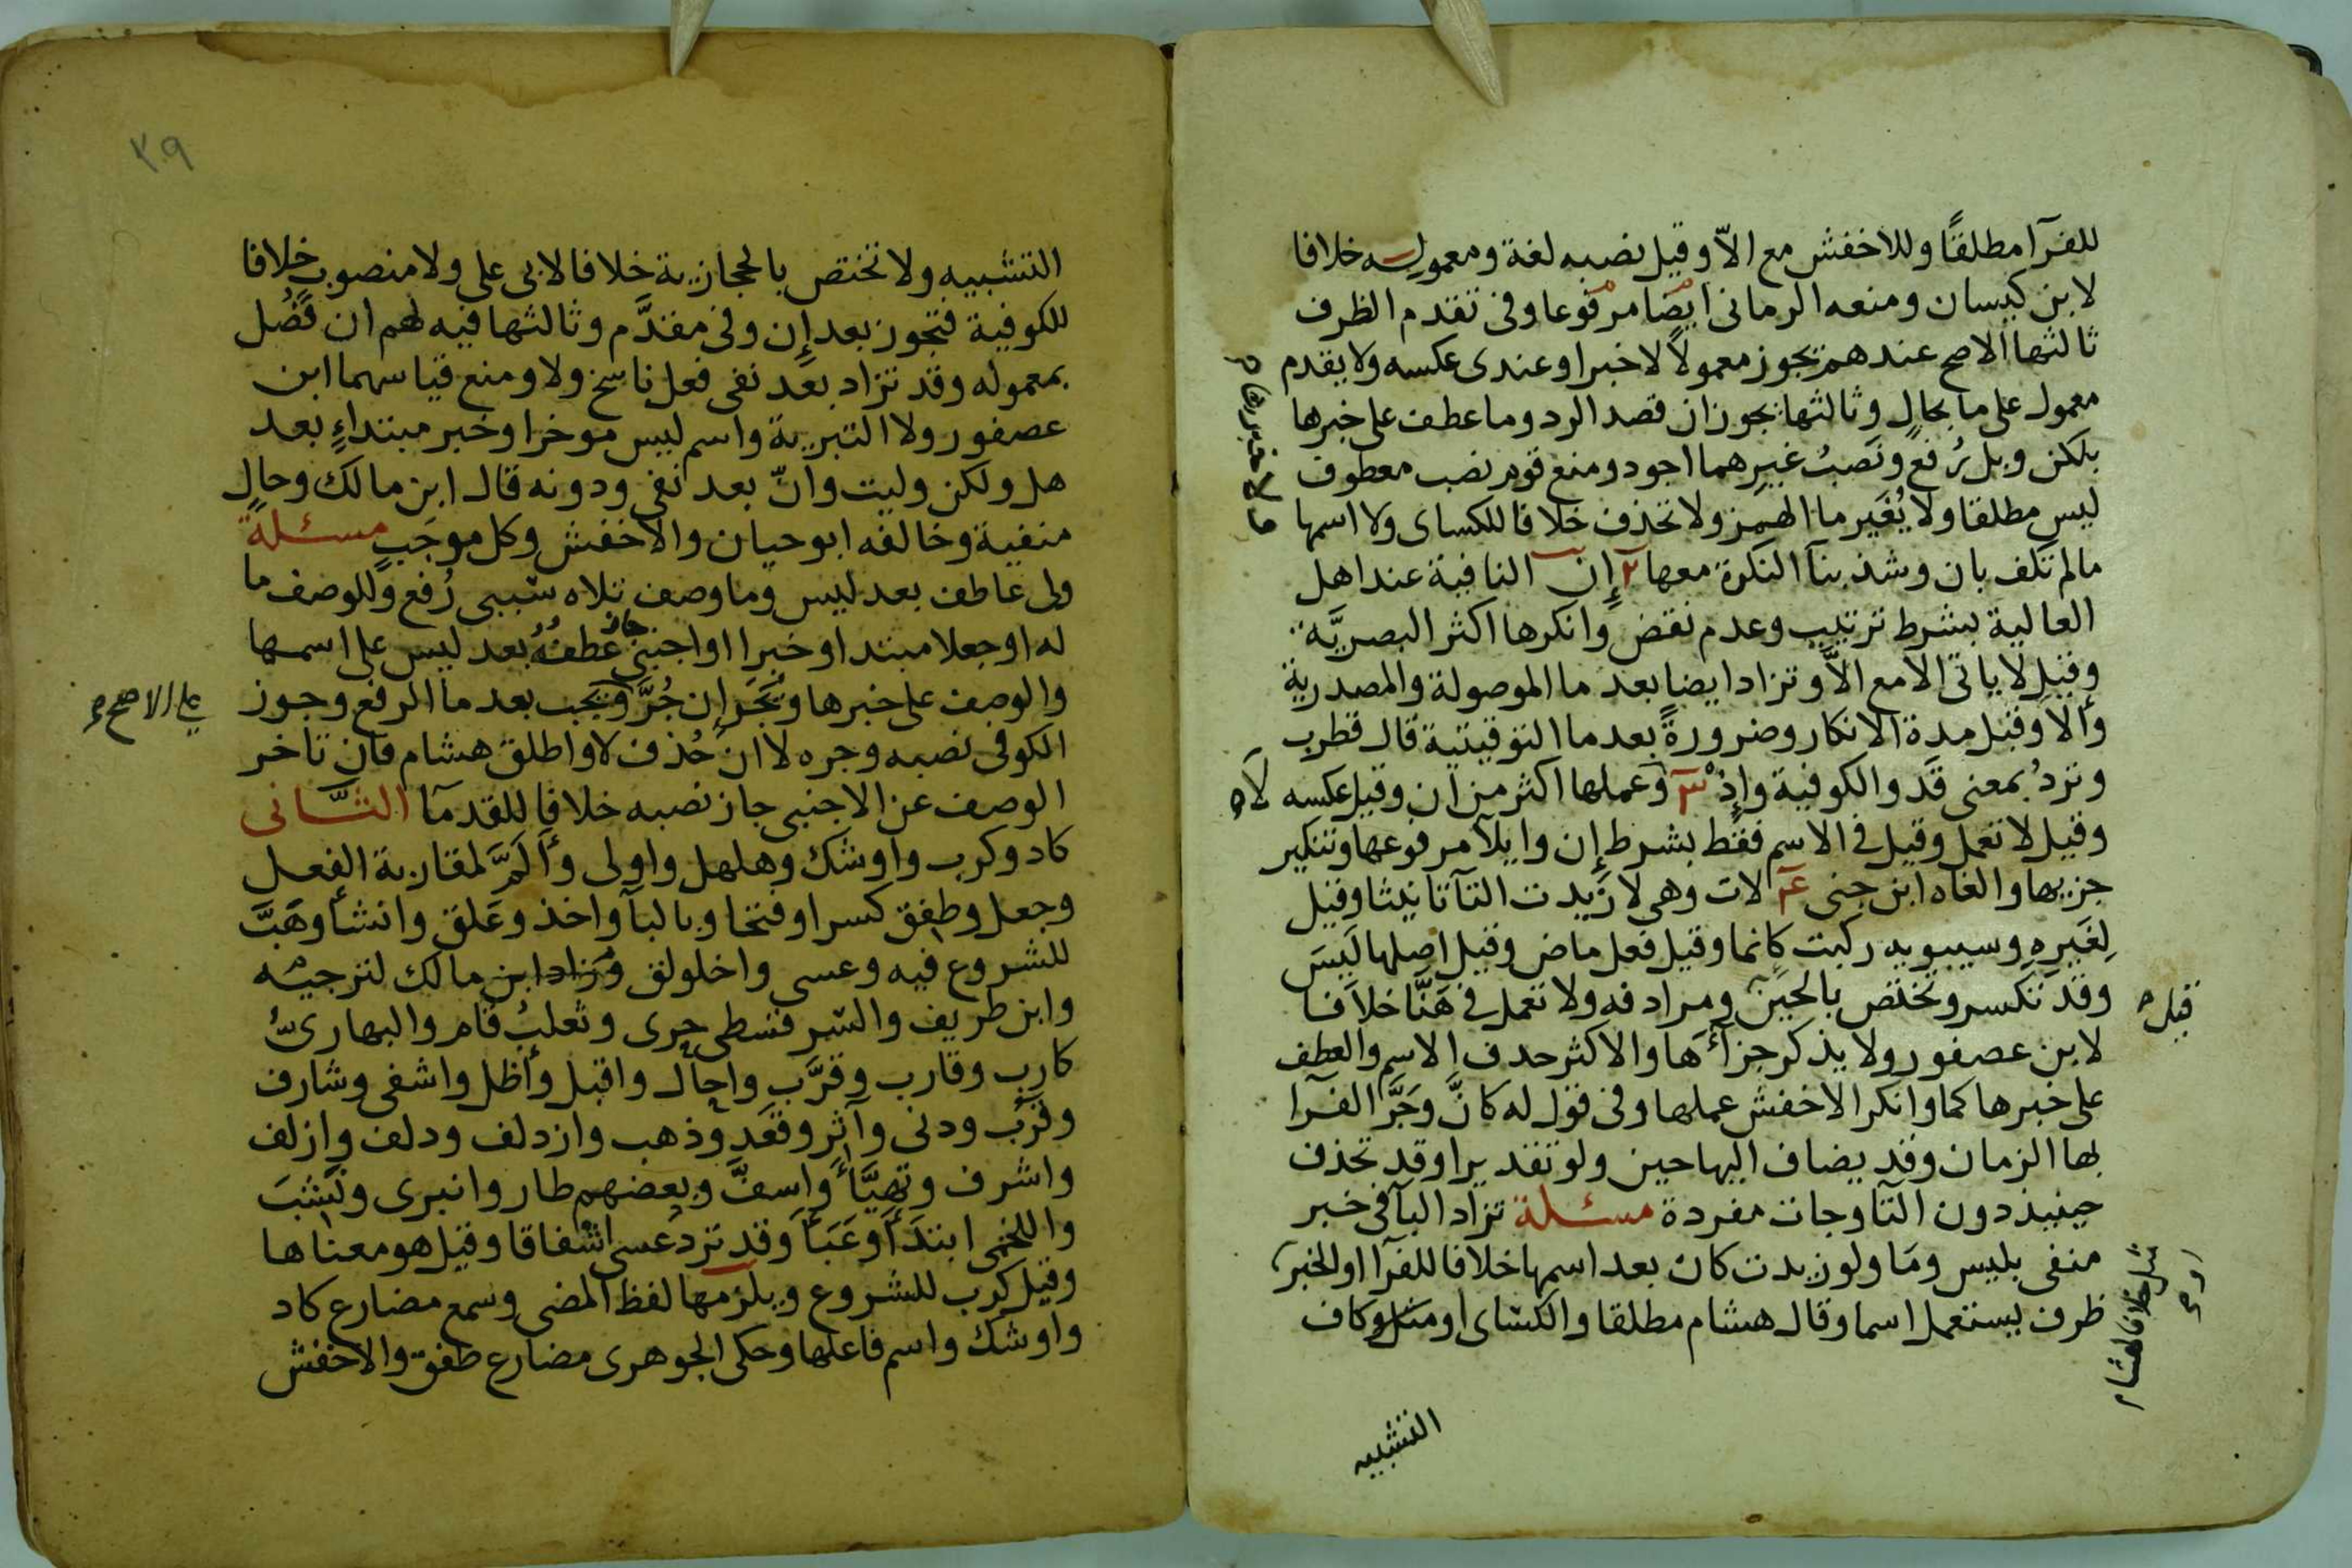 للفرآ مطلقًا وللاخفش مع الاّ وقيل نصبه لغة ومعموليه خلافا
لابن كيسان ومنعه الرمانى ايضا مرفوعا وفى تقدم الظرف
ثالثها الاصح عندهم تجوز معمولاً لاخبرا وعندى عكسه ولا يقدم
معمول على ما بحالٍ وثالثها يجوز ان قصد الرد وما عطف على خبرها
بلكن وبل رُفع ونَصبُ غيرهما اجود ومنع قوم نصب معطوف
ليس مطلقا ولا يُغَير ما الهمز ولا تحذف خلافا للكساى ولا اسمها
ما لم تكف بان وشذ بنآ النكرة معها ٢ إن النافية عند اهل
العالية بشرط ترتيب وعدم نقض وانكرها اكثر البصريَّة
وقيل لا ياتى الا مع الاَّ وتزاد ايضا بعد ما الموصولة والمصدرية
وألا وقبل مدة الانكار وضرورةً بعد ما التوقيتية قال قطرب
وتردُ بمعنى قَد والكوفية وإذ ٣ وعملها اكثر من ان وقيل عكسه
لا
وقيل لا تعمل وقيل فى الاسم فقط بشرط إن وايلآ مرفوعها وتنكير
جزيها والغاه ابن جنى ٤ لات وهى لا زيدت التآ تانيثا وقيل
لِغَيرِهِ وسيبويه ركبت كانما وقيل فعل ماض وقيل اصلها لَيسَ
وقد تكسر وتختص بالحِين ومرادفه ولا تعمل فى هَنَّا خلافا
قيل
لابن عصفور ولا يذكر جزآءَها والاكثر حدف الاسم والعطف
على خبرها كما وانكر الاخفش عملها وفى قول له كانَّ وجَرَّ الفرآ
بها الزمان وقد يضاف اليها حين ولو تقديرا وقد تحذف
حينيذ دون التآ وجات مفردة مسئلة تزاد البآ فى خبر
منفى بليس ومَا ولو زيدت كان بعد اسمها خلافا للفرآ او الخبر
ظرف يستعمل اسما وقال هشام مطلقا والكساى او مثل وكاف
خلافا لهشام
التشبيه
٣٠٩
التشبيه ولا تختص بالحجازية خلافا لابى على ولا منصوب خلافا
للكوفية فتجوز بعد إن وفى مقدَّم وثالثها فيه لهم ان فُصُل
بمعموله وقد تزاد بعد نفى فعل ناسخ ولا ومنع قياسهما ابن
عصفور ولا التبرية واسم ليس موخرا وخبر مبتداءٍ بعد
هل ولكن وليت وانّ بعد نفى ودونه قال ابن مالك وحالٍ
منفية وخالفه ابو حيان والاخفش وكل موجَبٍ مسئلة
ولى عاطف بعد ليس وما وصف تلاه سببى رُفع وللوصف ما
له او جعلا مبتدا وخبرا او اجنبى جاز عطفُهُ بعد ليس على اسمها
والوصف على خبرها ويُجَر إن جُرَّ ويجب بعد ما الرفع وجوز
على الاصح
الكوفى نصبه وجره لا ان حُذف لا واطلق هشام فان تاخر
الوصف عن الاجنبى جاز نصبه خلافا للقدمآ الثَّانى
كاد وكرب واوشك وهلهل واولى وأَلَمَّ لمقاربة الفعل
وجعل وطفق كسرا وفتحا وبالبآ واخذ وعَلق وانشأ وهَبَّ
للشروع فيه وعسى واخلولق وزاد ابن مالك لترجيه
وابن طريف والسرقسطى حرى وثعلبُ قام والبهارىُّ
كارب وقارب وقرَّب واحال واقبل وأظل واشفى وشارف
وقرُب ودنى وآثر وقعَد وذهب وازدلف ودلف وازلف
واشرف وتهيَّأَ واسفَّ وبعضهم طار وانبرى ونَشبَ
واللخمى ابتَدَأ وعَبَأَ وقد تردُ عسى اشفاقا وقيل هو معناها
وقيل كرب للشروع ويلزمها لفظ المضى وسمع مضارع كاد
واوشك واسم فاعلها وحكى الجوهرى مضارع طفق والاخفش